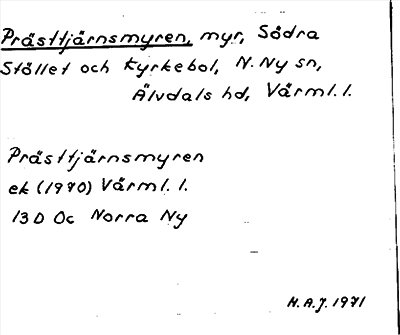 Prästtjärnsmyren, myr, Södra
Stöllet och Kyrkebol, N. Ny sn,
Älvdals hd, Värml. l.
Prästtjärnsmyren
ek (1970) Värml. l.
13D 0c Norra Ny
H.A.J. 1971